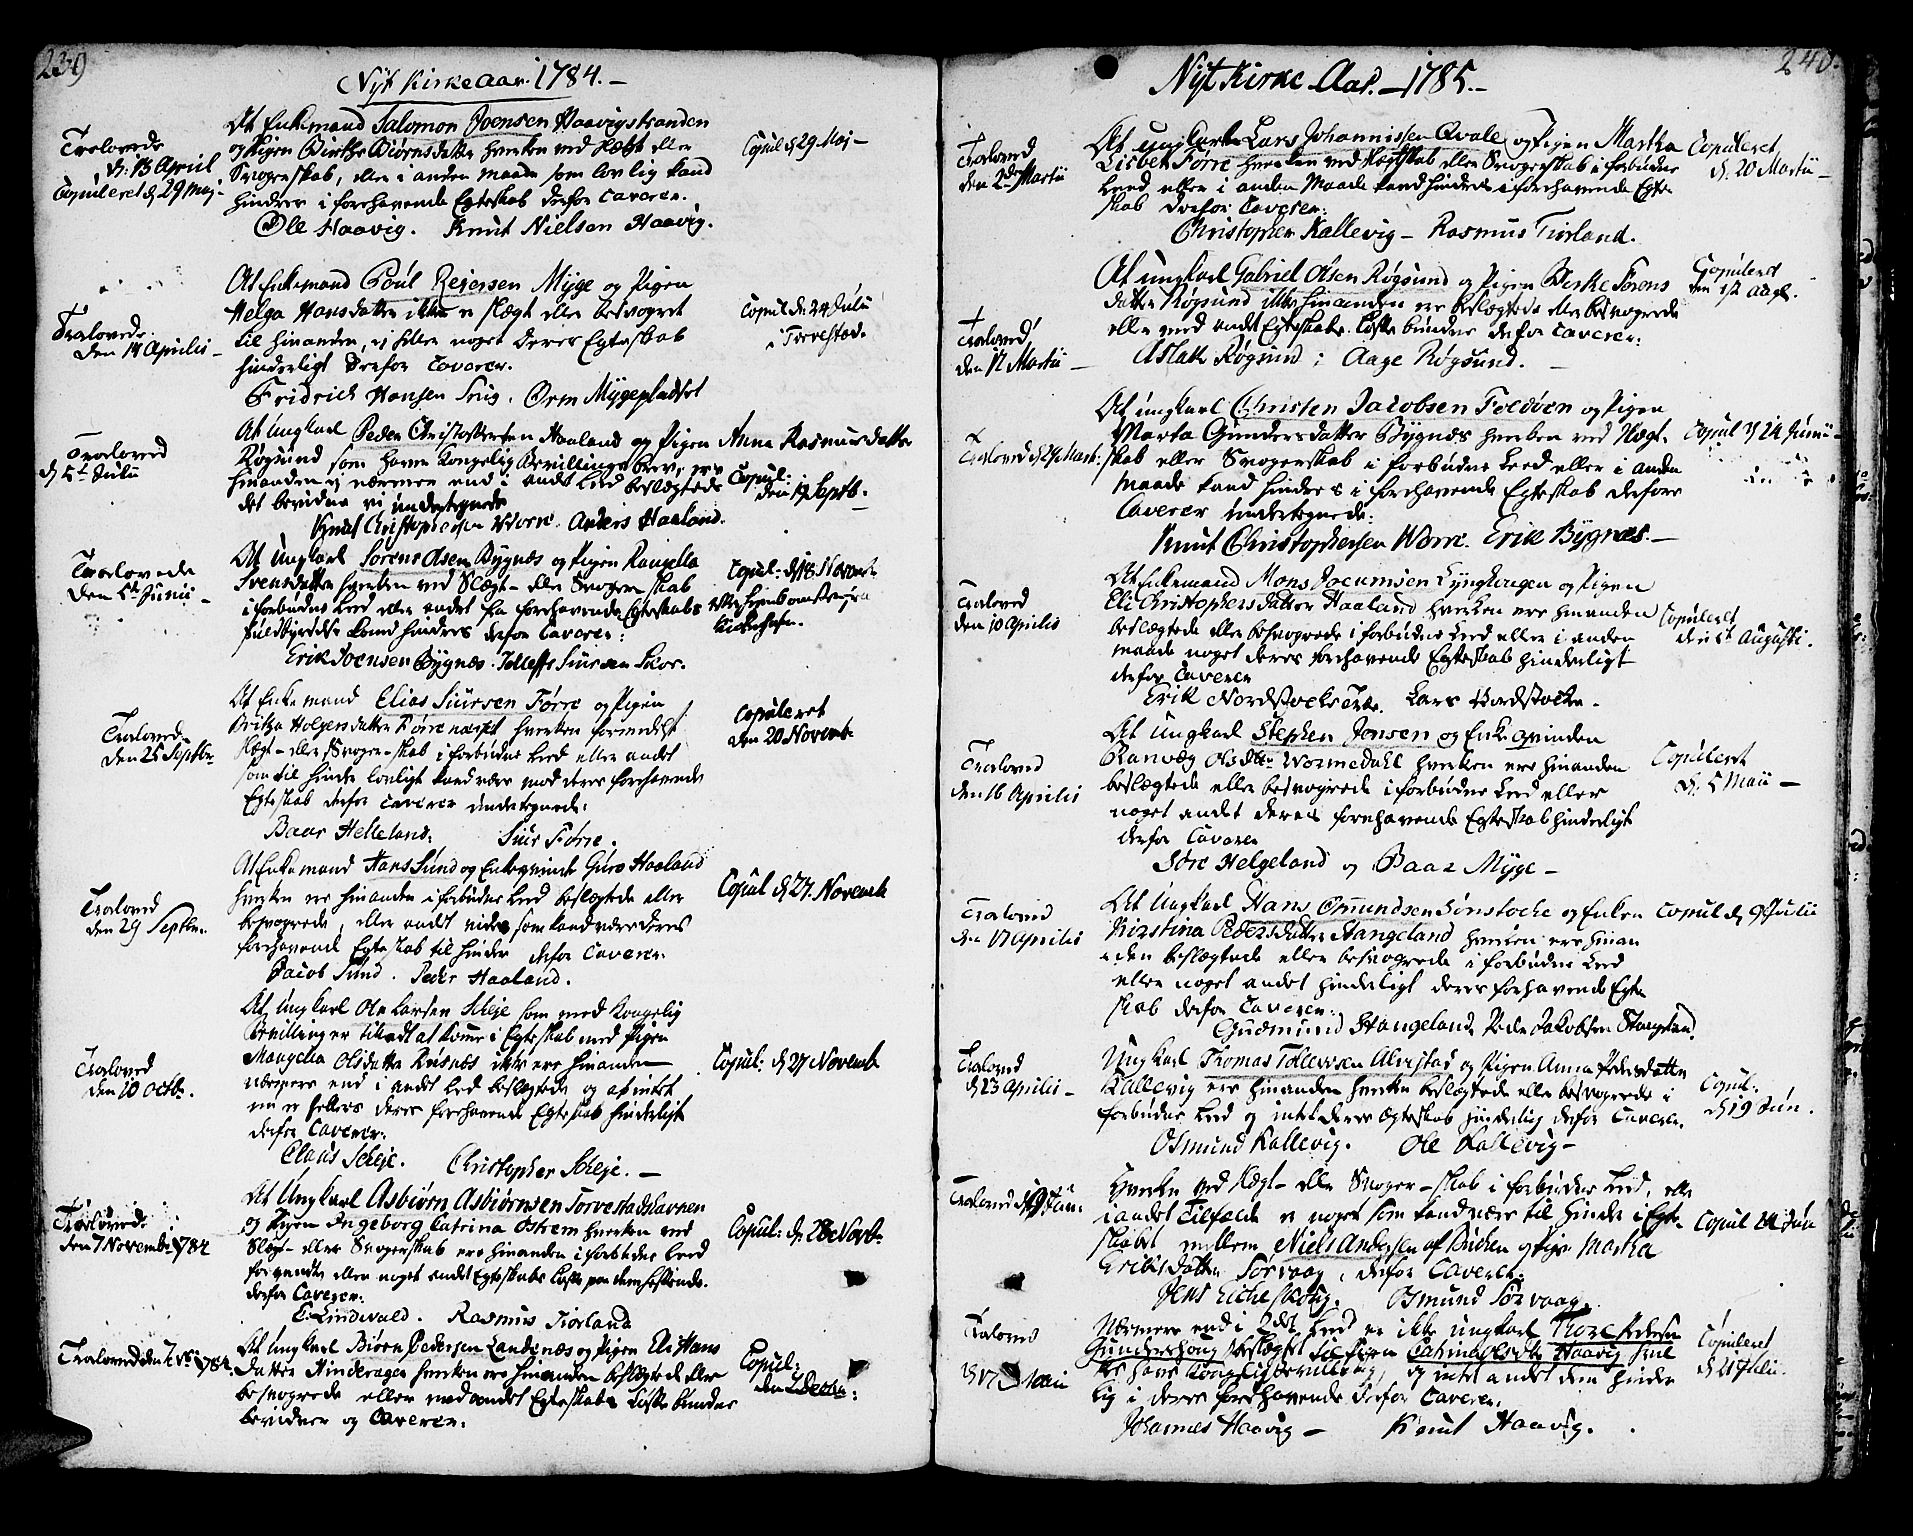 239
Nyt Kirke Aar. 1784. –
Trolovede
d: 13 April
Copuleret d 29 Maj.
At Enkemand Salomon Joensen Haavigstranden
og Pigen Birthe Biørnsdatter hverken ved Slægt eller
Svogerskab, eller i anden maade som lovlig kand
hindres i forehavende Egteskab derfor Caverer.
Ole Haavig. Knut Nielsen Haavig.
Copul d 29 Maj –
Trolovede
den 14 Aprilis –
At Enkemand Poul Reiersen Myge og Pigen
Helga Hansdatter ikke er slægt eller besvogret
til hinanden, ej heller noget deres Egteskab
hinderligt derfor Caverer.
Fridrich Hansen Friis. Orm Mygepladset
Copul den 24 Julii
i Torvestad.
Troloved
d 5t Julii
At Ungkarl Peder Christophersen Haaland og Pigen Anna Rasmusdatter
Røgsund som haver Kongelig Bevillings brev, ere
hinanden ej nærmere end i andet Leed beslægtede
det bevidner vi undertegnede
Knut Christophersen Worre. Anders Haaland.
Copul:
den 19 Septb.
Trolovede
den 5t Junii –
At Ungkarl Sørens Olsen Bygnæs og Pigen
Svensdatter hverken ved Slægt – eller Svogerskab
i forbudne Leed eller andet fra forehavende Egteskabs
fuldbyrdelse kand hindres derfor Caverer:
Erik Joensen Bygnæs. Tolleff Siursen Skor.
Copul: d 18 Novemb
Trolovede
den 25 Septbr
At Enkemand Elias Siursen Førre og Pigen
Britha Holgersdatter Førre næset hverken formedelst
slægt – eller Svoger-skab i forbudne Leed eller andet
som til hinder lovligt kand være mod deres forehavende
Egteskab derfor Caverer undertegnede:
Baar Helleland. Siur Førre.
Copuleret
den 20 Novemb
Trolovede
den 29 Septbr.
At Enkemand Hans Sund og Enkeqvinde Guro Haaland
hverken ere hinanden i forbudne Leed beslægtede eller
besvogrede, eller andet vides som kand være deres
forehavende Egteskab til hinder derfor Caverer
Jacob Sund. Peder Haaland.
Copul d 27. Novemb
Troloved
den 10 Octb.
At Ungkarl Ole Larsen Scheje som med Kongelig
Bevilling er tilladt at komme i Egteskab med Pigen
Mangela Olsdatter Risnæs ikke ere hinanden
nærmere end i andet Leed beslægtede og at intet
nu er hellers deres forehavende Egteskab hinderligt
derfor Caverer:
Claus Scheje. Christopher Scheje. –
Copul: d 27 Novemb
Trolovede
den 7 Novemb: 1784
At Ungkarl Asbiørn Asbiørnsen Torvestadshavnen
og Pigen Ingeborg Catrina Østrem hverken ved
Slægt – eller Svogerskab ere hinanden i forbudne Leed
forvandte eller noget andet Egteskabs Løfte paa dem heftende.
derfor Caverer:
T: Lindewald. Rasmus Tiorland
Copul: d. 28 Novb.
Trolovede den 7. Nov: 1784.
At Ungkarl Biørn Pedersen Landenæs og Pigen Eli Hans
Datter Hinderagen hverken ere hinanden beslægtede eller
besvogrede eller med andet Egteskabs Løfte bundne
bevidner og Caverer.
Copul:
den 2 Decbr:
240.
Nyt Kirke Aar. – 1785. –
Trolovede
den 2den Martii
At ungkarl Lars Johannissen Qvale og Pigen Martha
Lisbet Førre hverken ved Slægtskab eller Svogerskab i forbudne
Leed eller i anden Maade kand hindres i forehavende Egte
skab derfor Caverer:
Christopher Kallevig – Rasmus Tiorland.
Copuleret
d. 20 Martii –
Trolovede
den 12 Martii –
At ungkarl Gabriel Olsen Røgsund og Pigen Birthe Sørens
datter Røgsund ikke hinanden ere beslægtede eller besvogrede
eller med andet Egteskabs Løfte bundne derfor Caverer:
Aslak Røgsund; Aage Røgsund. –
Copuleret
den 12 Aug.
Trolovede d 29 Mart:
At ungkarl Christen Jacobsen Foldøen og Pigen
Marta Gundersdatter Bygnæs hverken ved Slægt-
skab eller Svogerskab i forbudne Leed eller i anden
Maade kand hindres i forehavende Egteskab derfore
Caverer undertegnede:
Knut Christophersen Worre. Erik Bygnæs. –
Copul d 24 Junii –
Trolovede
den 10 Aprilis
At Enkemand Mons Jocumsen Lynghougen og Pigen
Eli Christophersdatter Haaland hverken ere hinanden
beslægtede eller besvogrede i forbudne Leed eller i anden
maade noget deres forehavende Egteskab hinderligt
derfor Caverer
Erik Nordstocke. Lars Nordstocke –
Copuleret
den 5t Augusti.
Trolovede
den 16 Aprilis
At Ungkarl Stephen Jonsen og Enkeqvinden
Ranvæg Olsdtr Wormedahl hverken ere hinanden
beslægtede eller besvogrede i forbudne Leed eller
noget andet deres forehavende Egteskab hinderligt
derfor Caverer
Sore Helgeland og Baar Myge –
Copuleret
d. 5 Maii –
Trolovede
den 17 Aprilis
At Ungkarl Hans Omundsen Sønstocke og Enken
Kirstina Pedersdatter Stangeland hverken ere hinan
den beslægtede eller besvogrede i forbudne Leed
eller noget andet hinderligt deres forehavende Egte
skab derfor Caverer:
Gudmund Stangeland, Peder Jakobsen Stangeland
Copul d 9 Julii
Trolovede
d 23 Aprilis –
Ungkarl Thomas Tollevsen Alvestad og Pigen Anna Pedersdatter
Kallevig ere hinanden hverken beslægtede eller besvogrede i
forbudne Leed og intet deres Egteskab hinderlig derfor Caverer.
Osmund Kallevig. Ole Kallevig –
Copul:
d 19 Jun.
Hverken ved Slægt – eller Svoger-skab i forbudne Leed, eller
i andet Tilfælde er noget som kand være til hinder i Egte-
skabet mellem Niels Andersen af Bucken og Pigen Martha
Erichsdatter Torvaag, derfor Caverer:
Jens Eicheskoug. Osmund Torvaag.
Copul 24 Jun
Trolovede
d 17 Maii
Nærmere end i 2det Leed er ikke ungkarl Thore Pedersen
Gundershoug beslægtet til Pigen Haavig
Kongelig bevilling, og intet andet dem hinder
lig i deres forehavende derfor Caverer.
Johannes Haavig – Knut Haavig.
Copuleret
d 21 Julii.